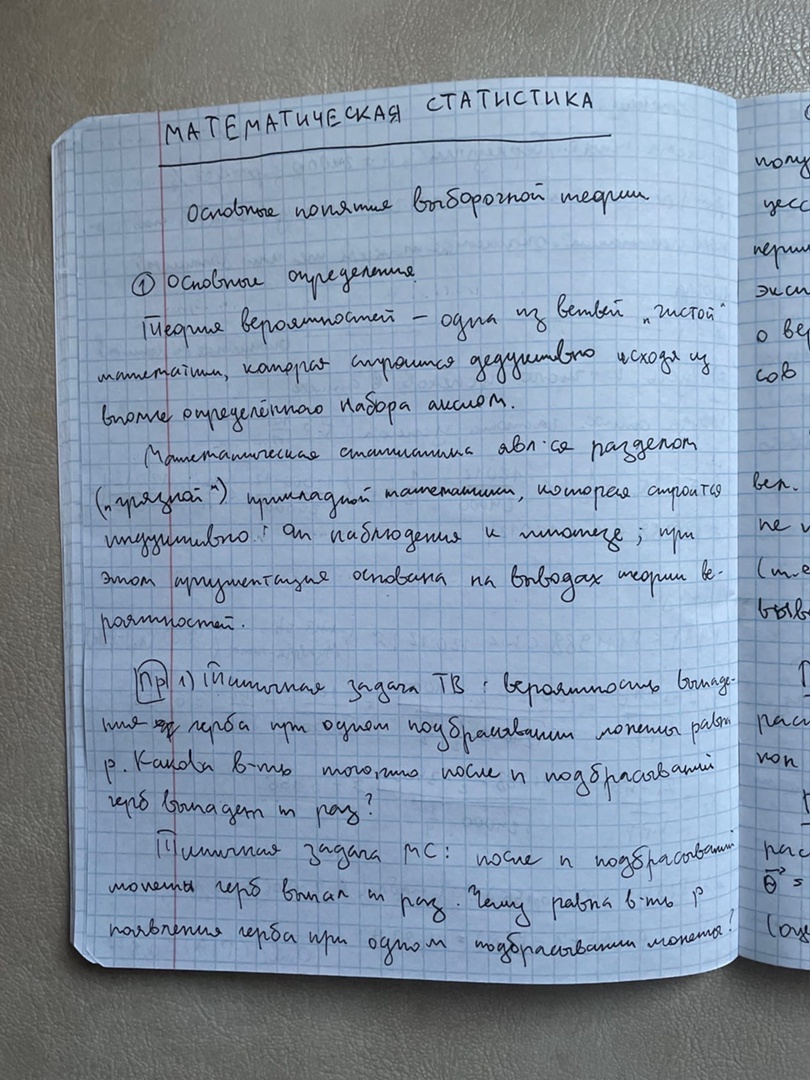 МАТЕМАТИЧЕСКАЯ СТАТИСТИКА
Основные понятия выборочной теории
① Основные определения.
Теория вероятностей – одна из ветвей „чистой“
математики, которая строится дедуктивно исходя из
вполне определённого набора аксиом.
Математическая статистика явл-ся разделом
(„грязной“) прикладной математики, которая строится
индуктивно: от наблюдения к гипотезе; при
этом аргументация основана на выводах теории ве-
роятностей.
Пр 1) Типичная задача ТВ: вероятность выпаде-
ния герба при одном подбрасывании монеты равна
p. Какова в-ть того, что после n подбрасываний
герб выпадет m раз?
Типичная задача МС: после n подбрасываний
монеты герб выпал m раз. Чему равна в-ть p
появления герба при одном подбрасывании монеты?
полу
цесс
экс
о вер
сов
вел.
не
(т.е
выв
рас
поп
рас
θ⃗ =
(оц